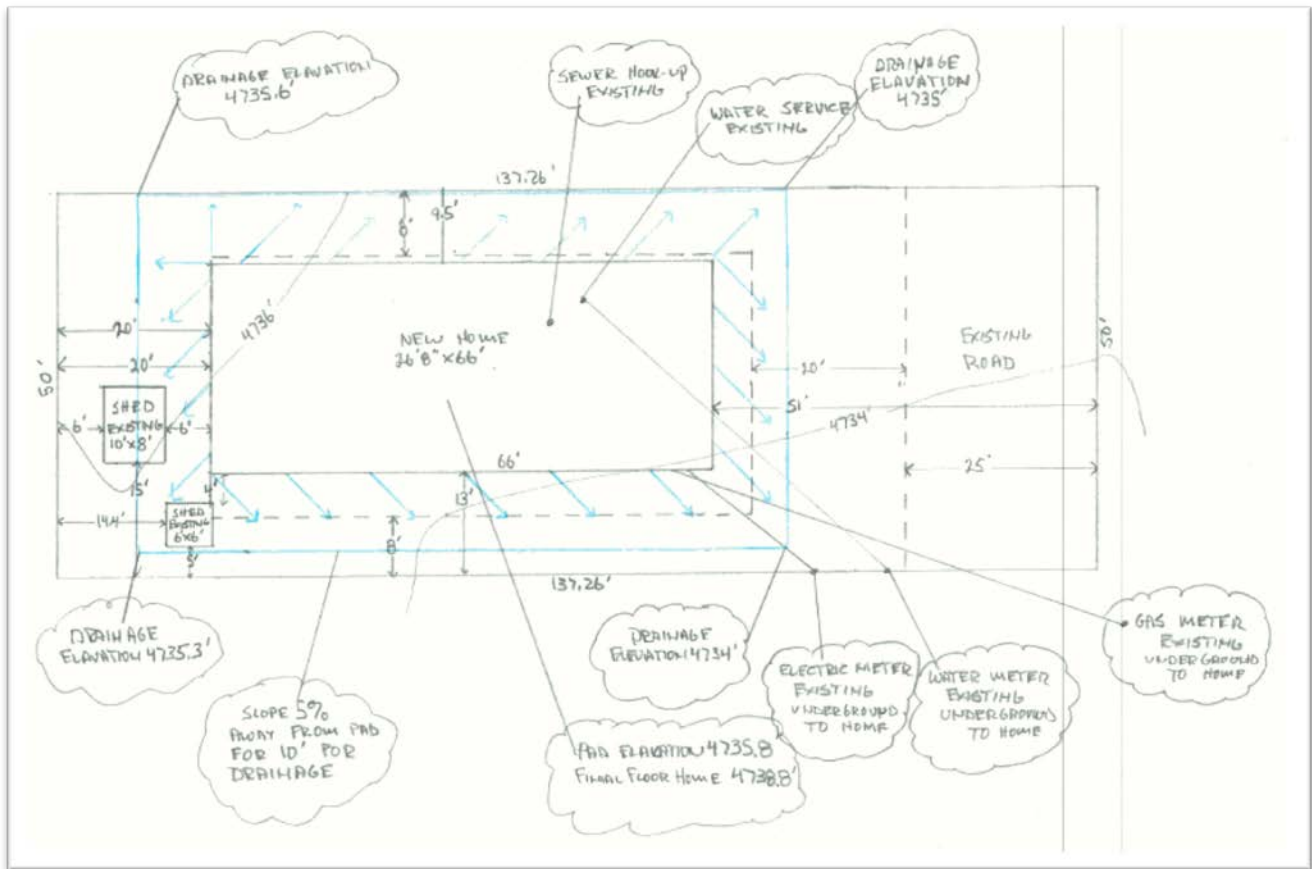 DRAINAGE ELAVATION
4735.6'
SEWER HOOK-UP
EXISTING
WATER SERVICE
EXISTING
DRAINAGE
ELAVATION
4735'
137.26'
8'
9.5'
4736'
20'
20'
50'
NEW HOME
26'8"x66'
EXISTING
ROAD
50'
20'
51'
4734'
SHED
EXISTING
10'x8'
6'
6'
66'
25'
15'
4'
13'
14.4'
SHED
EXISTING
6'x6'
5'
8'
137.26'
DRAINAGE
ELAVATION 4735.3'
SLOPE 5%
AWAY FROM PAD
FOR 10' FOR
DRAINAGE
DRAINAGE
ELEVATION 4734'
PAD ELAVATION 4735.8
FINAL FLOOR HOME 4738.8'
ELECTRIC METER
EXISTING
UNDERGROUND
TO HOME
WATER METER
EXISTING
UNDERGROUND
TO HOME
GAS METER
EXISTING
UNDERGROUND
TO HOME